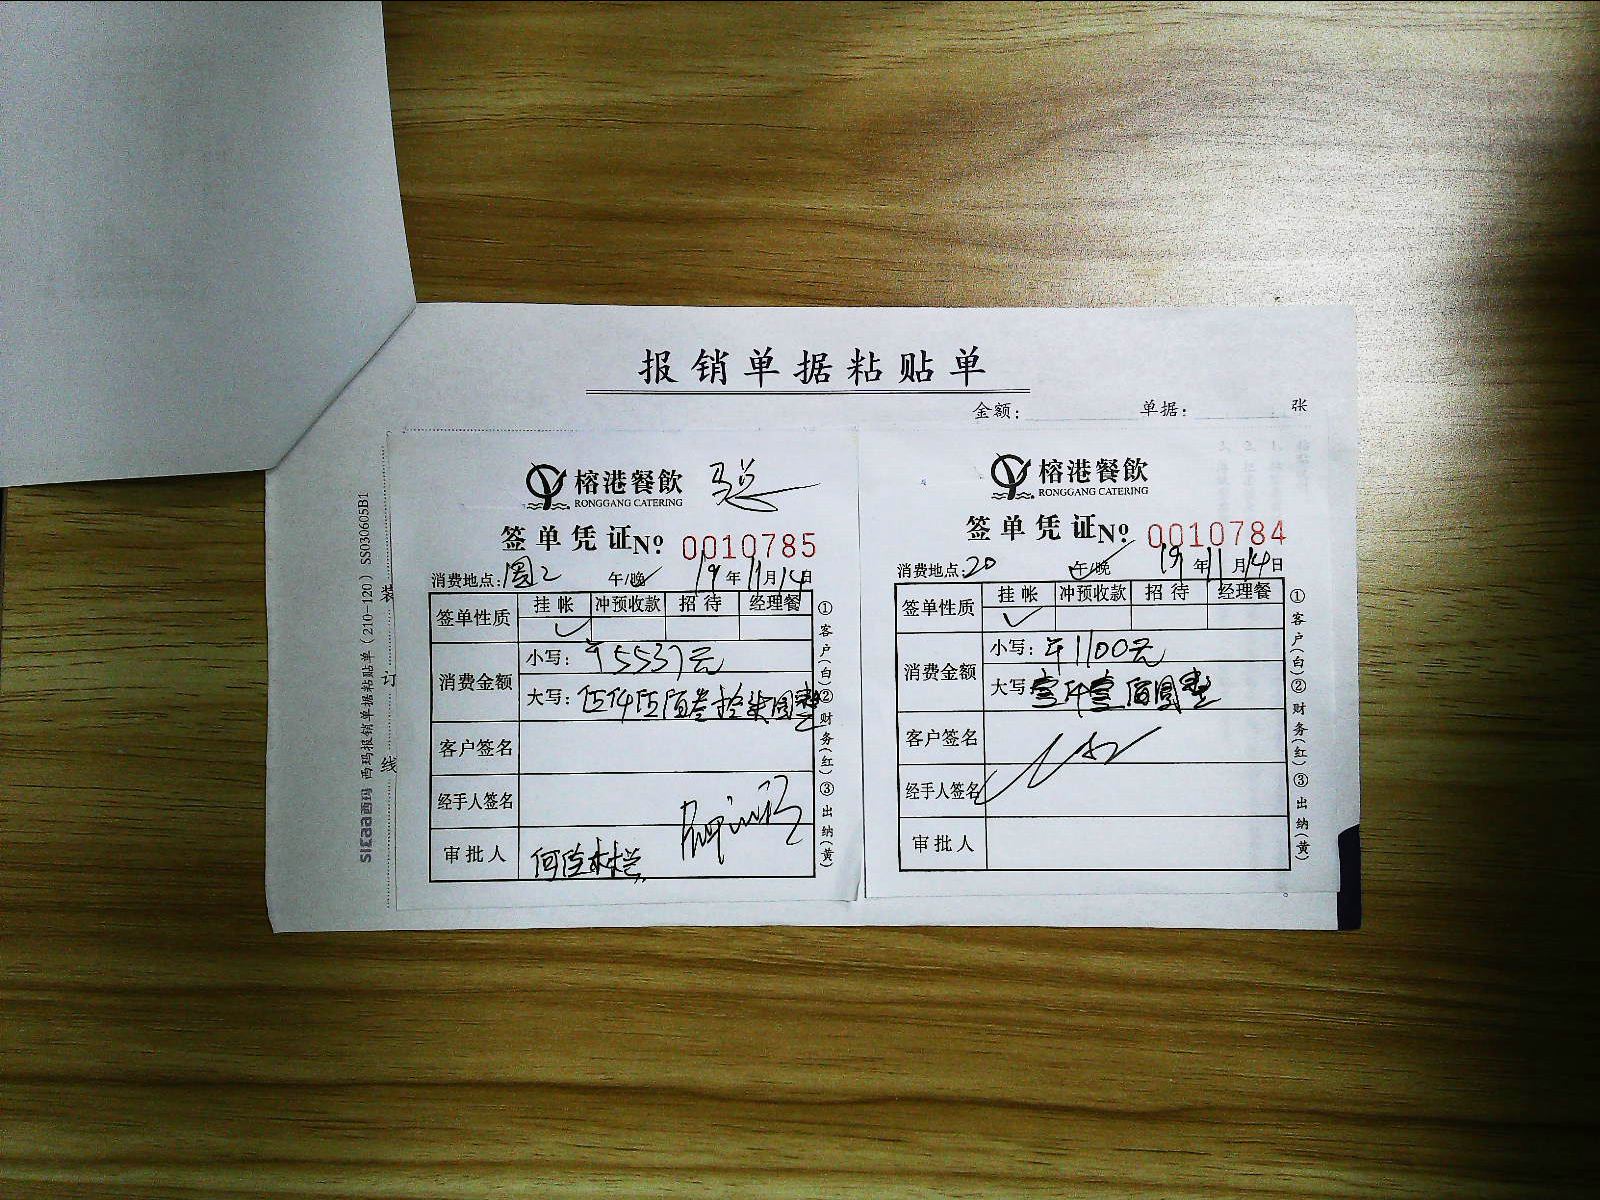 报销单据粘贴单
金额： 单据： 张
SS030605B1
西玛报销单据粘贴单（210-120）
西玛
装订线
榕港餐飲 马总
RONGGANG CATERING
签单凭证 Nº 0010785
消费地点： 午/晚 19年11月14日
签单性质 挂帐 冲预收款 招待 经理餐
消费金额 小写：¥5537元
大写：伍仟伍佰叁拾柒圆整
客户签名
经手人签名
审批人
①客户(白)②财务(红)③出纳(黄)
榕港餐飲
RONGGANG CATERING
签单凭证 Nº 0010784
消费地点：20 午/晚 19年11月14日
签单性质 挂帐 冲预收款 招待 经理餐
消费金额 小写：¥1100元
大写：壹仟壹佰圆整
客户签名
经手人签名
审批人
①客户(白)②财务(红)③出纳(黄)